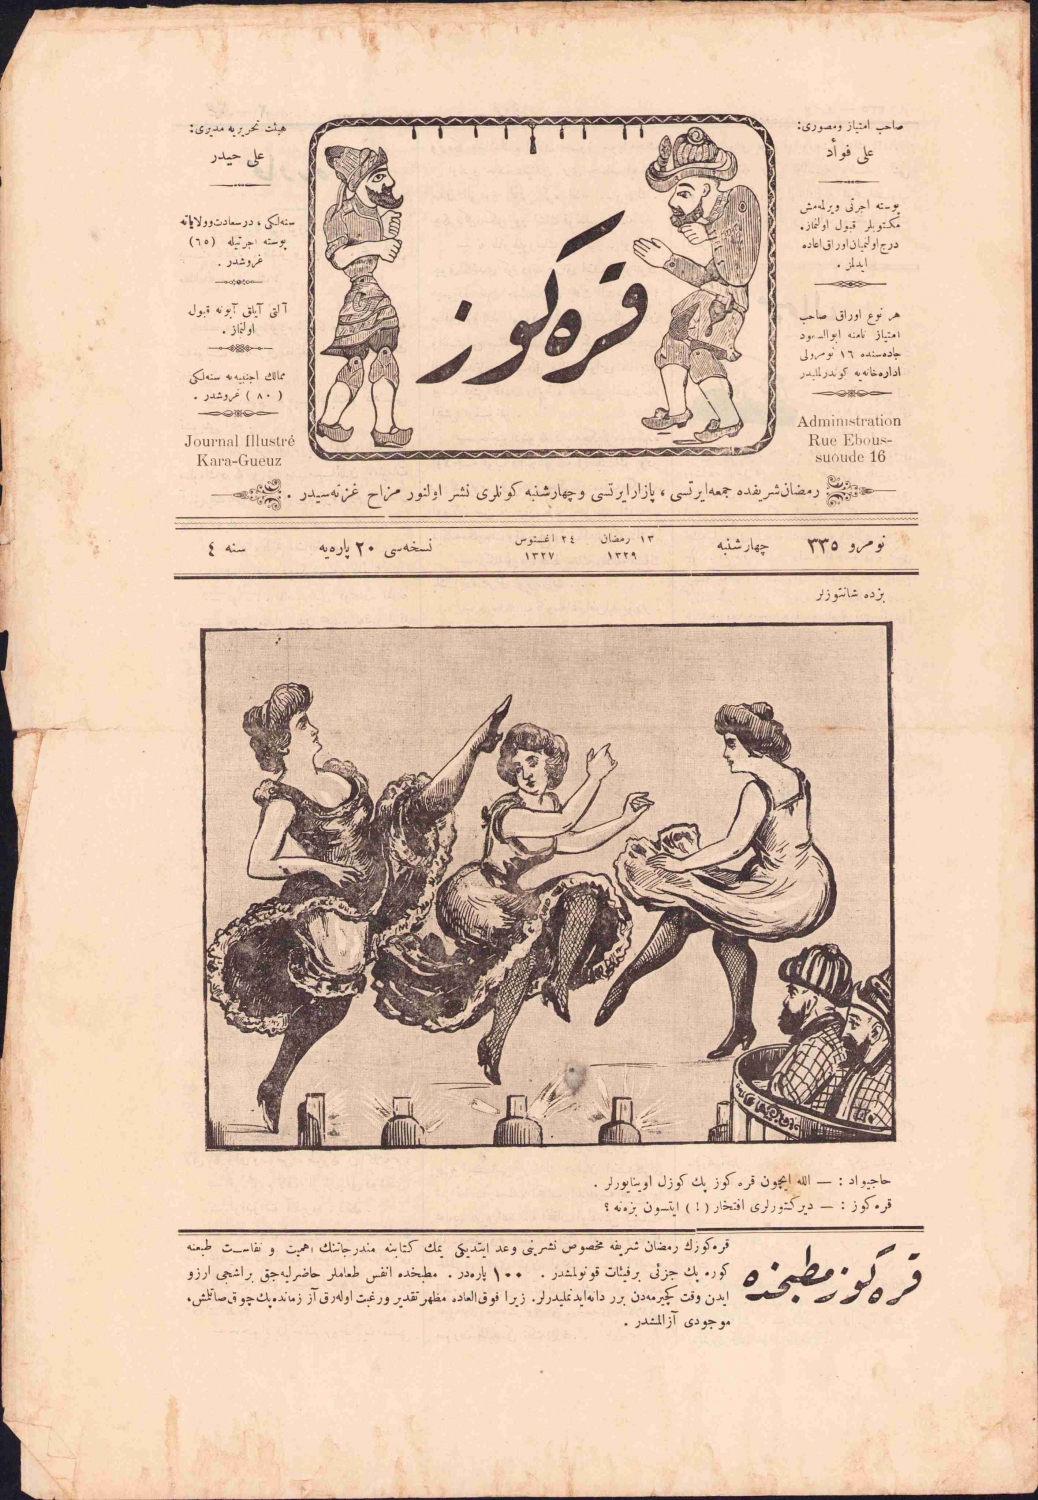 صاحب امتیاز ومصوری:
علی فوأد
پوسته اجرتی ویرلمه‌مش
مکتوبلر قبول اولنماز.
درج اولنمیان اوراق اعاده
ایدلمز .
هر نوع اوراق صاحب
امتیاز نامنه ابوالسعود
جاده‌سنده ۱٦ نومرولی
اداره‌خانه‌یه کوندرلملیدر
Administration
Rue Ebous-
suoude 16
قره کوز
هیئت تحریریه مدیری:
علی حیدر
سنه‌لکی ، درسعادت وولایاته
پوسته اجرتیله (٦٥)
غروشدر .
آلتی آیلق آبونه قبول
اولنماز .
ممالک اجنبیه‌یه سنه‌لکی
( ۸۰ ) غروشدر .
Journal Illustré
Kara-Gueuz
رمضان شریفده جمعه‌ایرتسی ، پازارایرتسی وچهارشنبه کونلری نشر اولنور مزاح غزته‌سیدر .
نومرو ۳۳٥ چهارشنبه ۱۳ رمضان ۱۳۲۹ ۲٤ اغستوس ۱۳۲۷ نسخه‌سی ۲۰ پاره‌یه سنه ٤
بزده شانتوزلر
حاجیواد : — الله ایچون قره کوز پك کوزل اوینایورلر .
قره‌کوز : — دیرکتورلری افتخار (!) ایتسون بزه‌نه ؟
قره کوز مطبخده
قره‌کوزك رمضان شریفه مخصوص نشرینی وعد ایتدیکی یمك کتابنه مندرجاتنك اهمیت و نفاست طبعنه
کوره پك جزئی برفیئات قونولمشدر . ۱۰۰ پاره‌در . مطبخده انفس طعاملر حاضرلیه‌جق براشجی ارزو
ایدن وقت کچیرمه‌دن برر دانه‌ایدنملیدرلر. زیرا فوق‌العاده مظهر تقدیر ورغبت اوله‌رق آز زمانده‌پك چوق صاتلمش،
موجودی آزالمشدر .